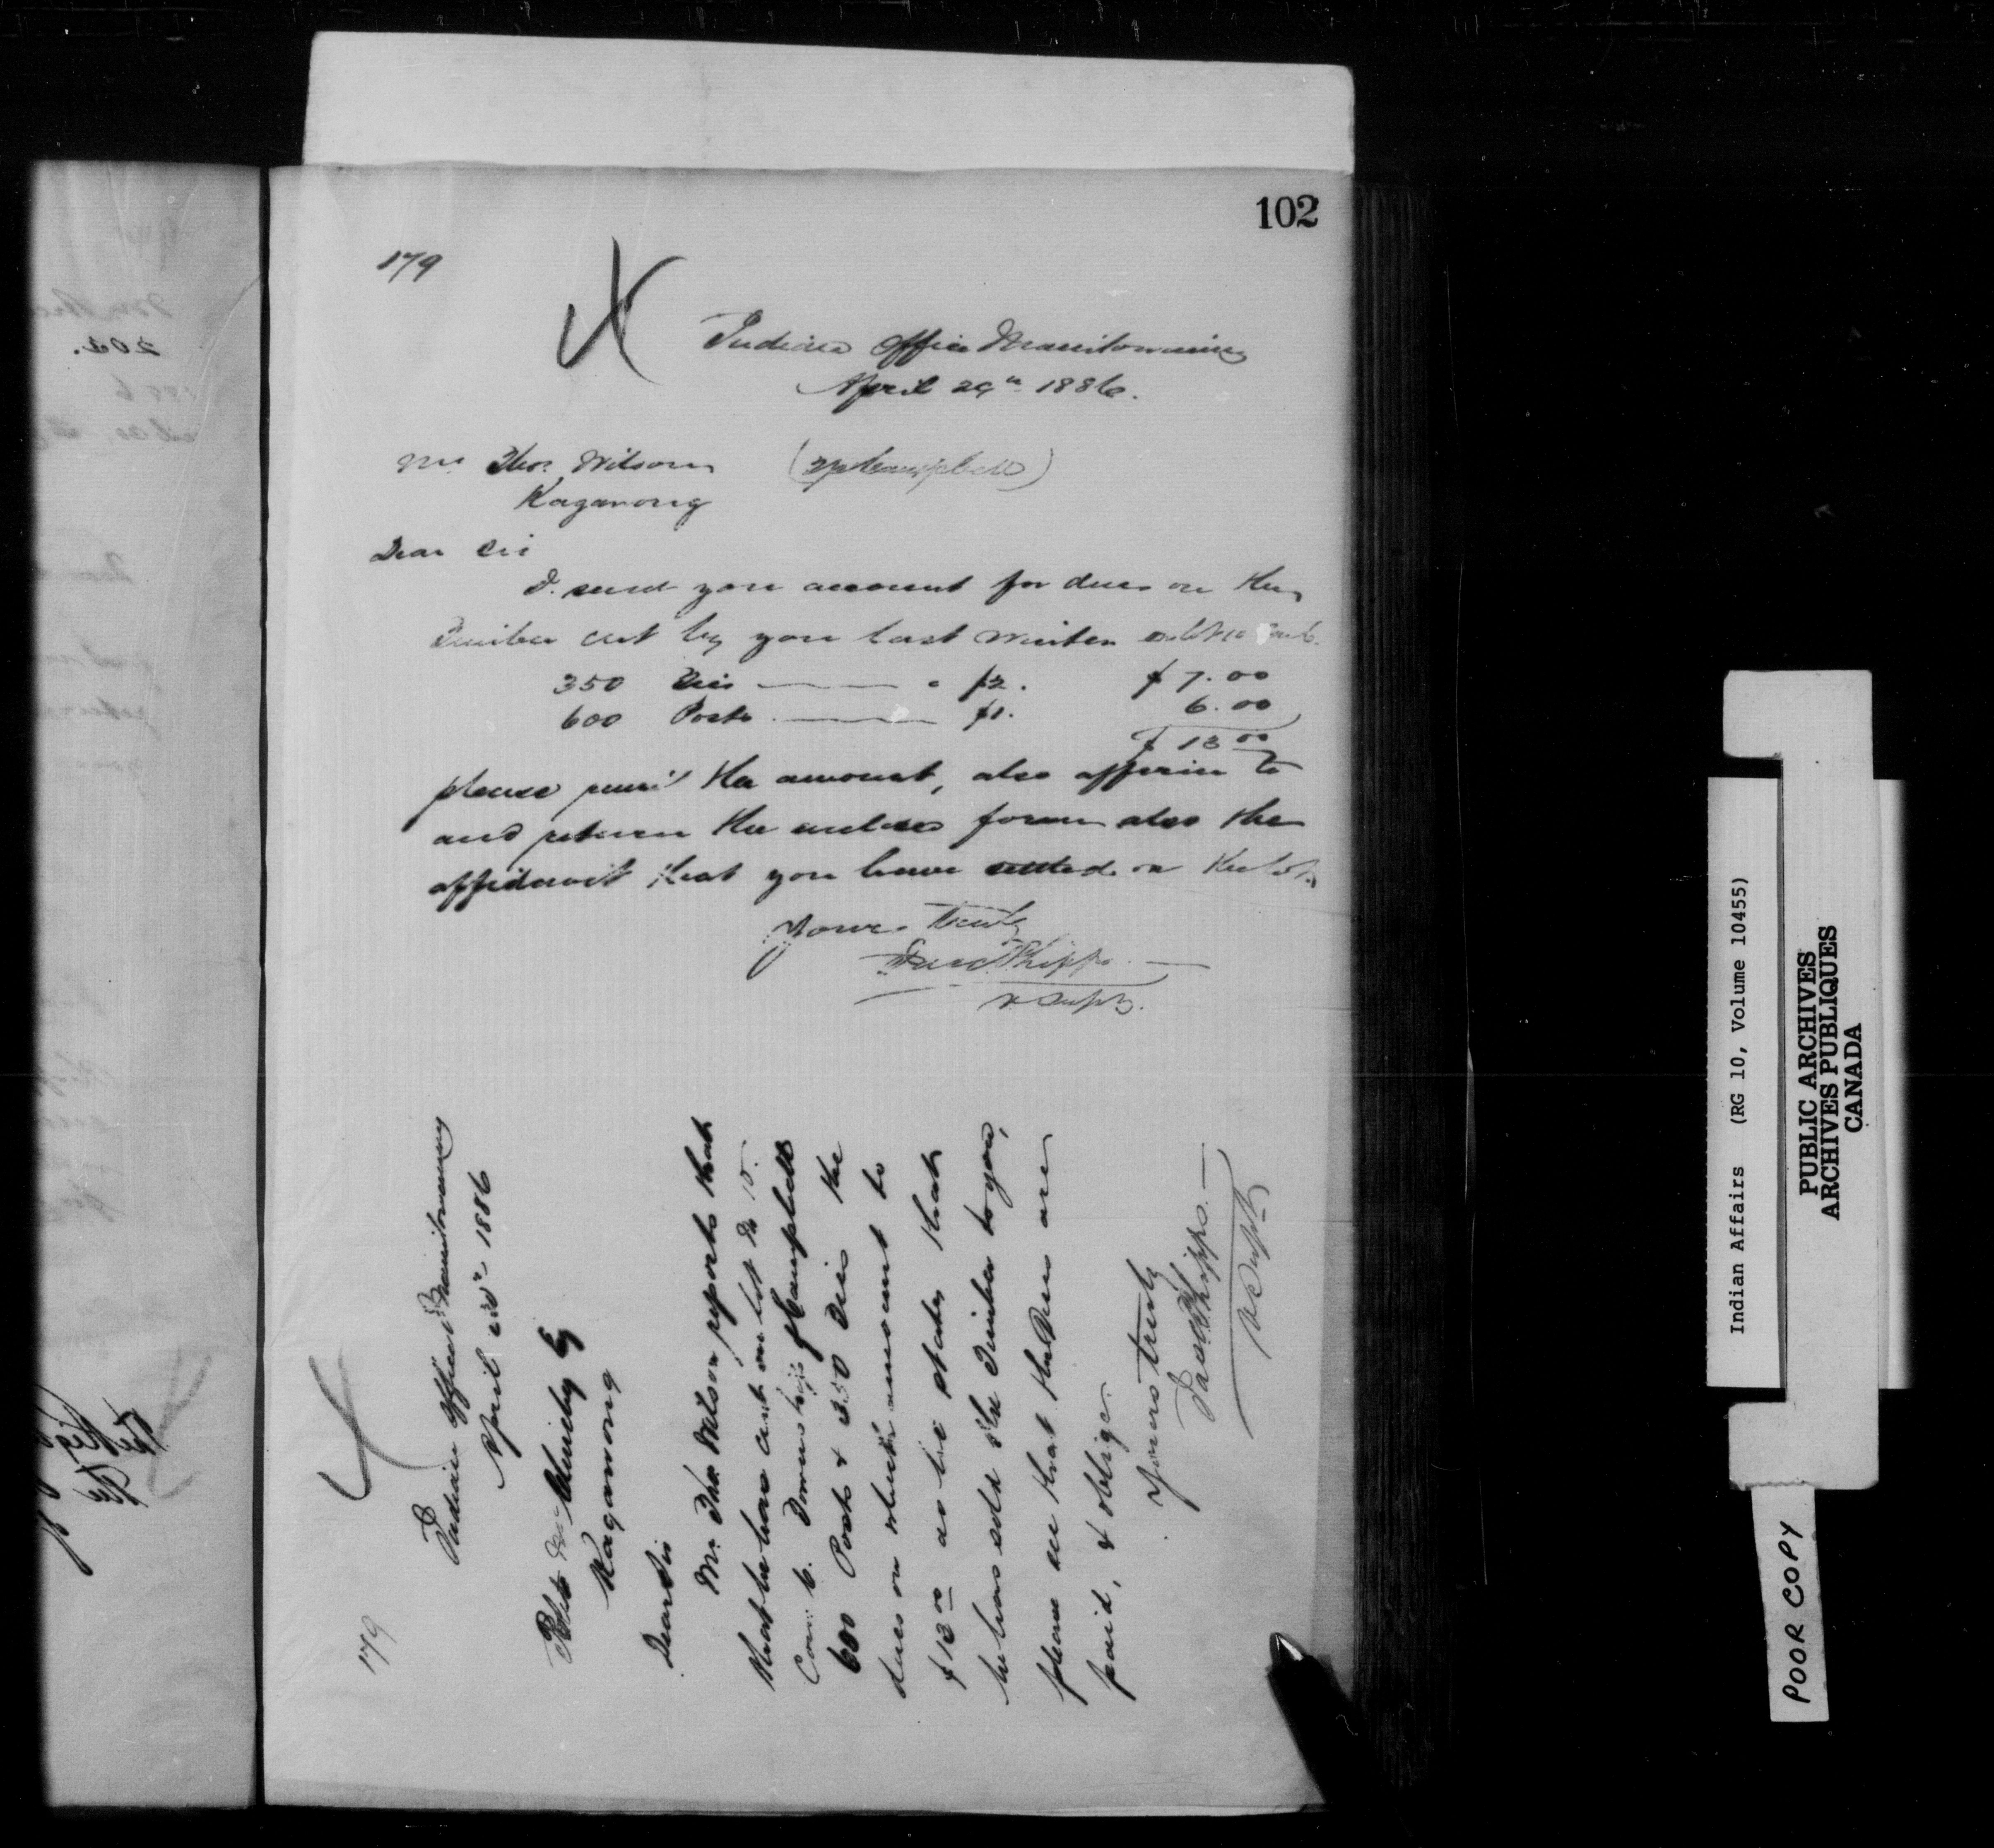 102
179
Indian Office Manitowaning
April 29th 1886.
Mr Thos. Wilson (Tp Campbell)
Kagawong
Dear Sir
I send you account for dues on the
Timber cut by you last winter
350 Ties " $2. $7.00
600 Posts $1. 6.00
$13 00
please remit the amount, also affirm to
and return the enclosed form also the
affidavit that you have settled on the lot
Yours truly
Jas C Phipps.
V. Supt.
179
Indian Office Manitowaning
April 1886
Kagawong
Dear Sir
Mr. Thos. Wilson reports that
that he has cut on lot No 15.
Con 6. Township of Campbell
600 Posts & 350 Ties the
dues on which amount to
$13 00 as he states that
he has sold the Timber to you,
please see that the Dues are
paid, & oblige.
Yours truly
Jas C Phipps.
V Supt
Indian Affairs (RG 10, Volume 10455)
PUBLIC ARCHIVES
ARCHIVES PUBLIQUES
CANADA
POOR COPY